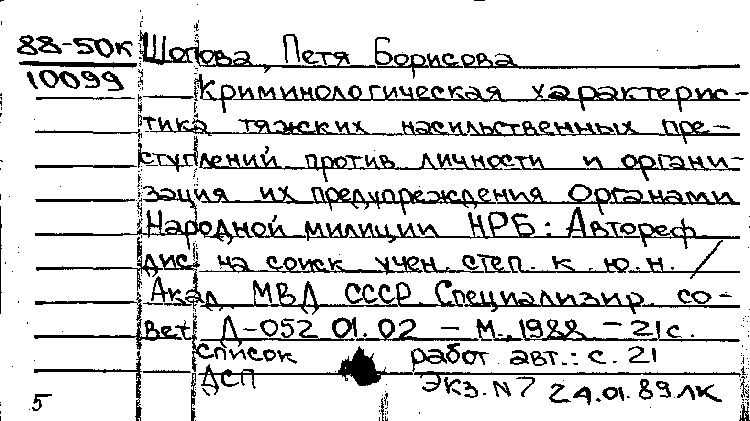 88-50К Шопова, Петя Борисова
10099
Криминологическая характерис-
тика тяжских насильственных пре-
ступлений против личности и органи-
зация их предупреждения органами
Народной милиции НРБ: Автореф.
дис. на соиск. учен. степ. к. ю. н. /
Акад. МВД СССР. Специализир. со-
вет Д-052.01.02 - М., 1988 - 21 с.
Список работ авт.: с. 21
ДСП Экз. N 7 24.01.89 ЛК
5